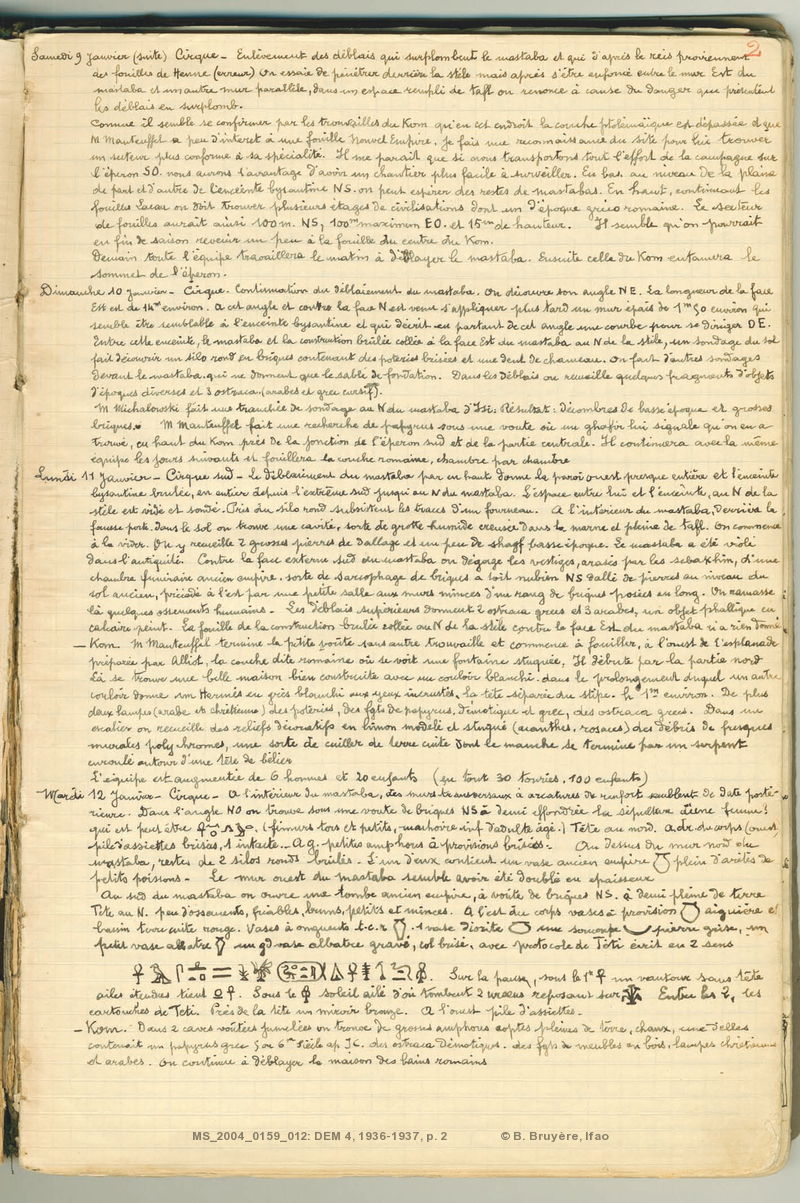 2
Samedi 9 Janvier (suite) Cirque - Enlèvement des déblais qui surplombent le mastaba et qui d'après le reis proviennent
des fouilles de Henne (erreur) On essaie de pénétrer derrière la stèle mais après s'être enfoncé entre le mur Est du
mastaba et un autre mur parallèle, dans un espace rempli de tafl on renonce à cause du danger que présentent
les déblais en surplomb.
Comme il semble se confirmer par les trouvailles du Kom qu'en cet endroit la couche ptolémaïque est dépassée et que
M Manteuffel a peu d'interet à une fouille Nouvel Empire, je fais une reconnaissance du site pour lui trouver
un secteur plus conforme à sa spécialité. Il me parait que si nous transportons tout l'effort de la campagne sur
l'éperon SO. nous aurons l'avantage d'avoir un chantier plus facile à surveiller. En bas, au niveau de la plaine
de part et d'autre de l'enceinte byzantine NS. on peut espérer des restes de mastabas. En haut, continuant les
fouilles Lacau on doit trouver plusieurs étages de civilisations dont un d'époque gréco romaine. Le secteur
de fouilles aurait ainsi 100 m. NS, 100m maximum EO. et 15m de hauteur. Il semble qu'on pourrait
en fin de saison revenir un peu à la fouille du centre du Kom.
Demain toute l'équipe travaillera le matin à déblayer le mastaba. Ensuite celle du Kom entamera le
sommet de l'éperon.
Dimanche 10 Janvier - Cirque. Continuation du déblaiement du mastaba. On découvre son angle NE. La longueur de la face
Est est de 14m environ. A cet angle et contre la face N est venu s'appliquer plus tard un mur épais de 1m50 environ qui
semble être semblable à l'enceinte byzantine et qui décrit en partant de cet angle une courbe pour se diriger OE.
Entre cette enceinte, le mastaba et la construction brûlée collée à la face Est du mastaba au N de la stèle, un sondage du sol
fait découvrir un silo rond en briques contenant des poteries brisées et une dent de chameau. On fait d'autres sondages
devant le mastaba qui ne donnent que le sable de fondation. Dans les déblais on recueille quelques fragments d'objets
d'époques diverses et 3 ostraca (arabes et grec cursif).
M Michalowski fait une tranchée de sondage au N du mastaba d'Isi. Résultat: décombres de basse époque et grosses
briques. M Manteuffel fait une recherche de papyrus sous une voute où un ghafir lui signale qu'on en a
trouvé, en haut du Kom près de la jonction de l'éperon sud et de la partie centrale. Il continuera avec la même
équipe les jours suivants et fouillera la couche romaine, chambre par chambre
Lundi 11 Janvier - Cirque sud - Le déblaiement du mastaba par en haut donne la paroi ouest presque entière et l'enceinte
byzantine brulée, en entier depuis l'extrême sud jusqu'au N du mastaba. L'espace entre lui et l'enceinte, au N de la
stèle est vidé et sondé. Près du silo rond subsistent les traces d'un fourneau. A l'intérieur du mastaba, derrière la
fausse porte, dans le sol on trouve une cavité, sorte de grotte humide creusée dans la marne et pleine de tafl. On commence
à la vider. On y recueille 2 grosses pierres de dallage et un peu de shagf basse époque. Le mastaba a été violé
dans l'antiquité. Contre la face externe sud du mastaba on dégage les vestiges, arasés par les sebaxhin, d'une
chambre funéraire ancien empire. sorte de sarcophage de briques à toit nubien NS dallé de pierres au niveau du
sol ancien, précédé à l'est par une petite salle aux murs minces d'un rang de briques posées en long. On ramasse
là quelques ossements humains. - Les déblais supérieurs donnent 2 ostraca grecs et 3 arabes, un objet phallique en
calcaire peint. La fouille de la construction brulée collée au N de la stèle contre la face Est du mastaba n'a rien donné
- Kom. M Manteuffel termine la petite voûte sans autre trouvaille et commence à fouiller, à l'ouest de l'esplanade
préparée par Alliot, la couche dite romaine où se voit une fontaine stuquée. Il débute par la partie nord
Là se trouve une belle maison bien construite avec un couloir blanchi. dans le prolongement duquel un autre
couloir donne un Hermès en grès blanchi aux yeux incrustés, la tête séparée du stipe. h. 1m environ. De plus
deux lampes (arabe et chrétienne) des poteries, des fgts de papyrus, démotique et grec, des ostraca grecs. Dans un
escalier on recueille des reliefs décoratifs en limon modelé et stuqué (acanthes, rosaces) des débris de fresques
murales polychromes, une sorte de cuiller de terre cuite dont le manche se termine par un serpent
enroulé autour d'une tête de bélier
L'équipe est augmentée de 6 hommes et 20 enfants (en tout 30 touries, 100 enfants)
Mardi 12 Janvier - Cirque - A l'intérieur du mastaba, des murs transversaux à arcatures de renfort semblent de date posté-
rieure. Dans l'angle NO on trouve sous une voute de briques NS à demi effondrée la sépulture d'une femme?
qui est peut être (fémurs tors et petits, - machoire inf d'adulte âgé.) Tête au nord. A dr du corps (ouest)
pile d'assiettes brisées, 1 intacte. - A g. petites amphores à provisions brisées. - Au dessus du mur nord du
mastaba, restes de 2 silos ronds brulés. - L'un d'eux contient un vase ancien empire plein d'arêtes de
petits poissons. - Le mur ouest du mastaba semble avoir été doublé en épaisseur
Au sud du mastaba on ouvre une tombe ancien empire, à voûte de briques NS. à demi pleine de terre
Tête au N. peu d'ossements, friables, bruns, petits et minces. A l'est du corps vases à provision aiguière et
bassin terre cuite rouge. Vases à onguents t.c.r. 1 vase diorite une soucoupe pierre grise, un
petit vase albatre un gd vase albatre gravé, col brisé, avec protocole de Téti écrit en 2 sens
Sur la panse, sous le 1er un vautour sans tête
ailes étendues tient. Sous le soleil ailé d'où tombent 2 uraeus reposant sur Entre les 2, les
cartouches de Teti. Près de la tête un miroir bronze. A l'ouest pile d'assiettes. -
- Kom. Dans 2 caves voûtées jumelées on trouve de grosses amphores coptes pleines de terre, chaux, une d'elles
contenait un papyrus grec 5 ou 6me siècle ap JC. des ostraca démotiques. des fgts de meubles en bois, lampes chrétiennes
et arabes. On continue à déblayer la maison des bains romains
MS_2004_0159_012: DEM 4, 1936-1937, p. 2 © B. Bruyère, Ifao